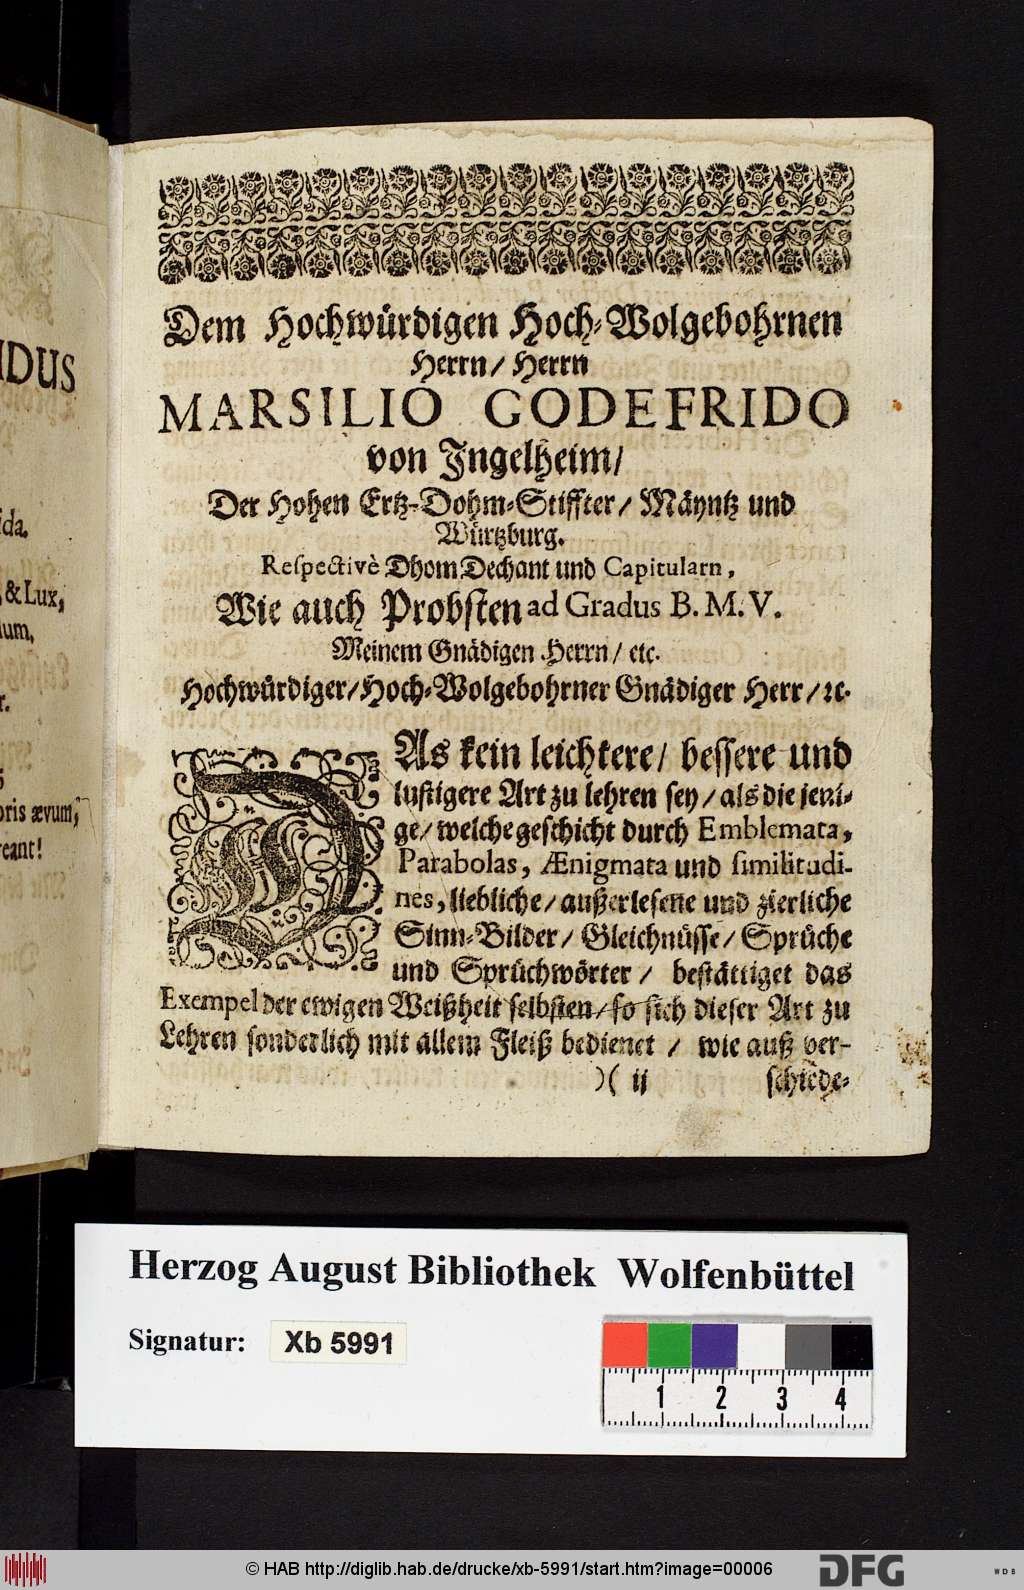 IDUS
ida.
& Lux,
ium,
r.
oris ævum,
reant!
Dem Hochwürdigen Hoch-Wolgebohrnen
Herrn/ Herrn
MARSILIO GODEFRIDO
von Ingelheim/
Der Hohen Ertz-Dohm-Stiffter/ Mäyntz und
Würtzburg.
Respectivè Dhom Dechant und Capitularn,
Wie auch Probsten ad Gradus B. M. V.
Meinem Gnädigen Herrn/ etc.
Hochwürdiger/Hoch-Wolgebohrner Gnädiger Herr/ꝛc.
DAs kein leichtere/ bessere und
lustigere Art zu lehren sey/als die jeni-
ge/welche geschicht durch Emblemata,
Parabolas, Ænigmata und similitudi-
nes, liebliche/außerlesene und zierliche
Sinn-Bilder/ Gleichnüsse/ Sprüche
und Sprüchwörter/ bestättiget das
Exempel der ewigen Weißheit selbsten/so sich dieser Art zu
Lehren sonderlich mit allem Fleiß bedienet/ wie auß ver-
)( ij schiede-
Herzog August Bibliothek Wolfenbüttel
Signatur: Xb 5991
1 2 3 4
© HAB http://diglib.hab.de/drucke/xb-5991/start.htm?image=00006
DFG
WDB